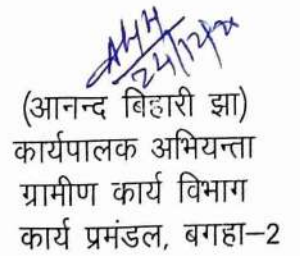 24/12/20
(आनन्द बिहारी झा)
कार्यपालक अभियन्ता
ग्रामीण कार्य विभाग
कार्य प्रमंडल, बगहा–2